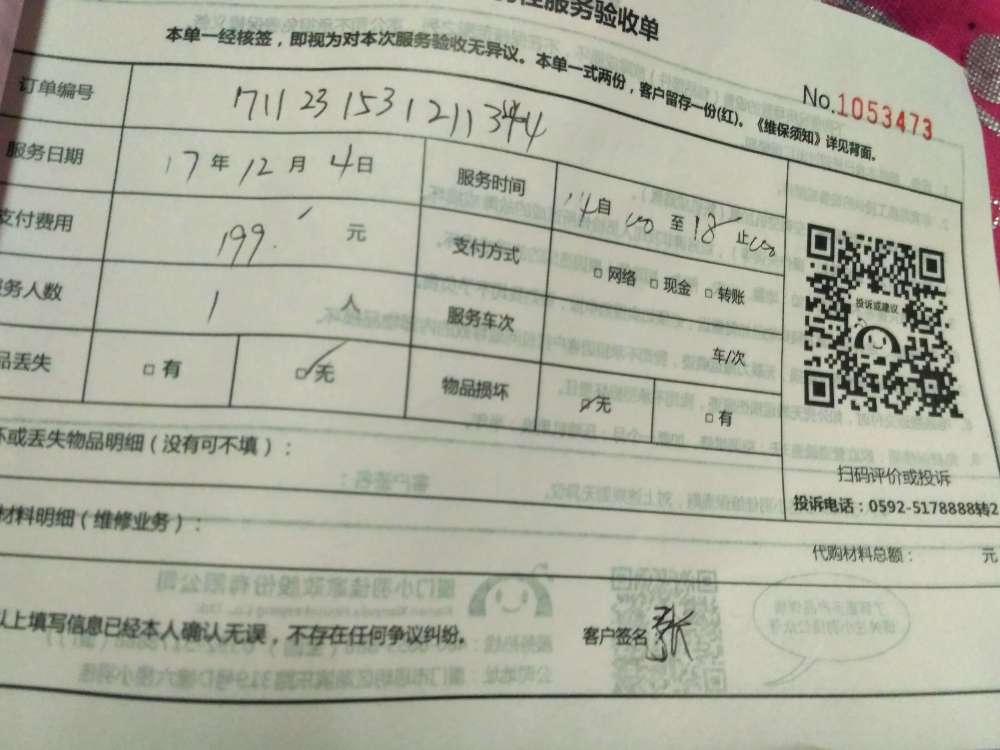 服务验收单
本单一经核签，即视为对本次服务验收无异议。本单一式两份，客户留存一份(红)。《维保须知》详见背面。
No.1053473
订单编号
服务日期 17年12月4日 服务时间 自 至18止
支付费用 199 元 支付方式 □网络 □现金 □转账
服务人数 1 人 服务车次 车/次
品丢失 □有 ☑无 物品损坏 ☑无 □有
投诉或建议
扫码评价或投诉
投诉电话：0592-5178888转2
坏或丢失物品明细（没有可不填）：
材料明细（维修业务）：
代购材料总额： 元
以上填写信息已经本人确认无误，不存在任何争议纠纷。 客户签名：张